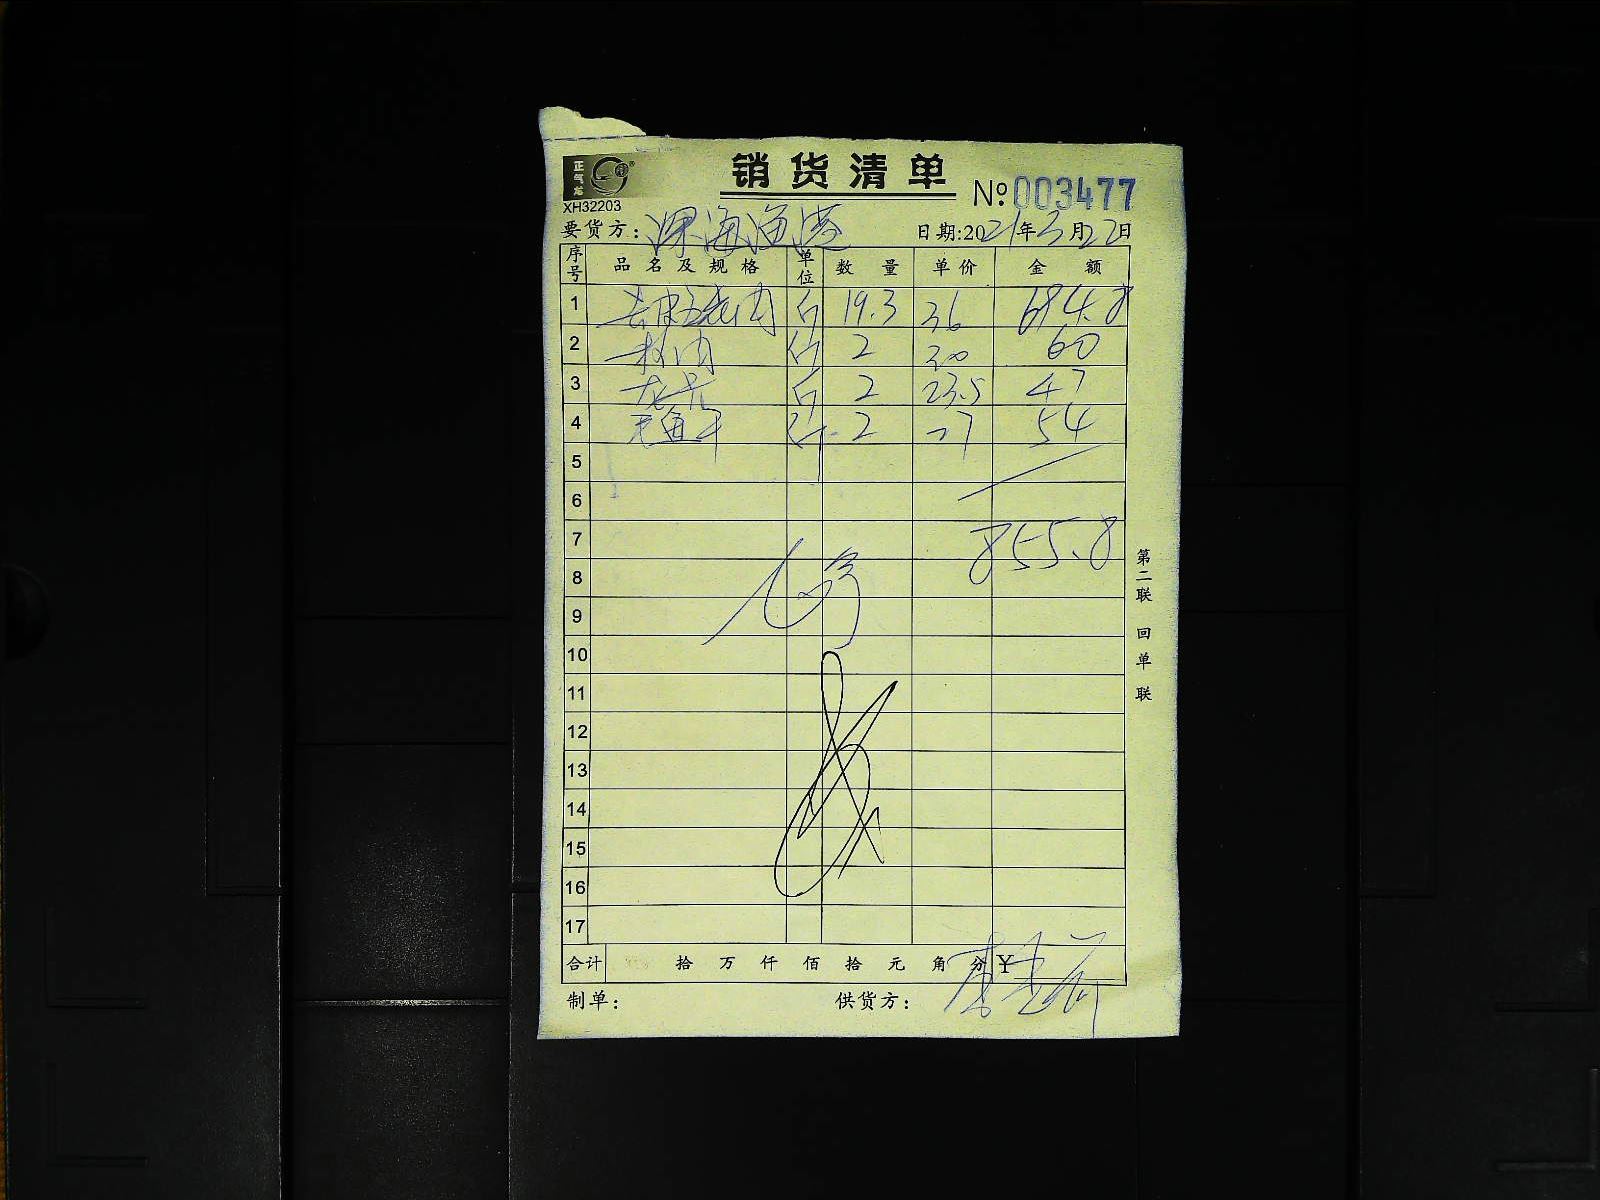 正气龙
销货清单
XH32203
№003477
要货方：深海渔港 日期:2021年3月22日
序号 品名及规格 单位 数量 单价 金额
1 斤 19.3 36 694.8
2 斤 2 30 60
3 斤 2 23.5 47
4 斤 2 27 54
5
6
7 855.8
8
9
10
11
12
13
14
15
16
17
合计 拾 万 仟 佰 拾 元 角 分 ¥
制单： 供货方：
第二联 回单联